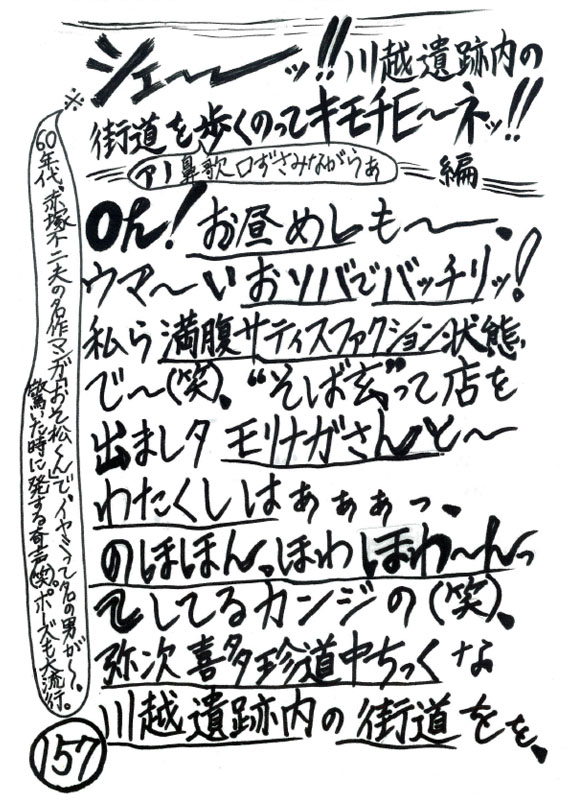 シェ〜〜ッ!!川越遺跡内の
街道を歩くのってキモチE〜ネッ!!
アノ鼻歌口ずさみながらぁ 編
Oん!お昼めしも〜〜、
ウマ〜いおソバでバッチリッ!
私ら満腹サティスファクション状態
で〜(笑)、“そば玄”って店を
出ましタ モリナガさんと〜
わたくしはぁぁぁっ、
のほほん。ほわほわ〜んっ
てしてるカンジの(笑)、
弥次喜多珍道中ちっくな
川越遺跡内の街道をを、
※60年代。赤塚不二夫の名作マンガ「おそ松くん」で、イヤミって名の男が〜、
驚いた時に発する奇声(笑)。ポーズも大流行。
157